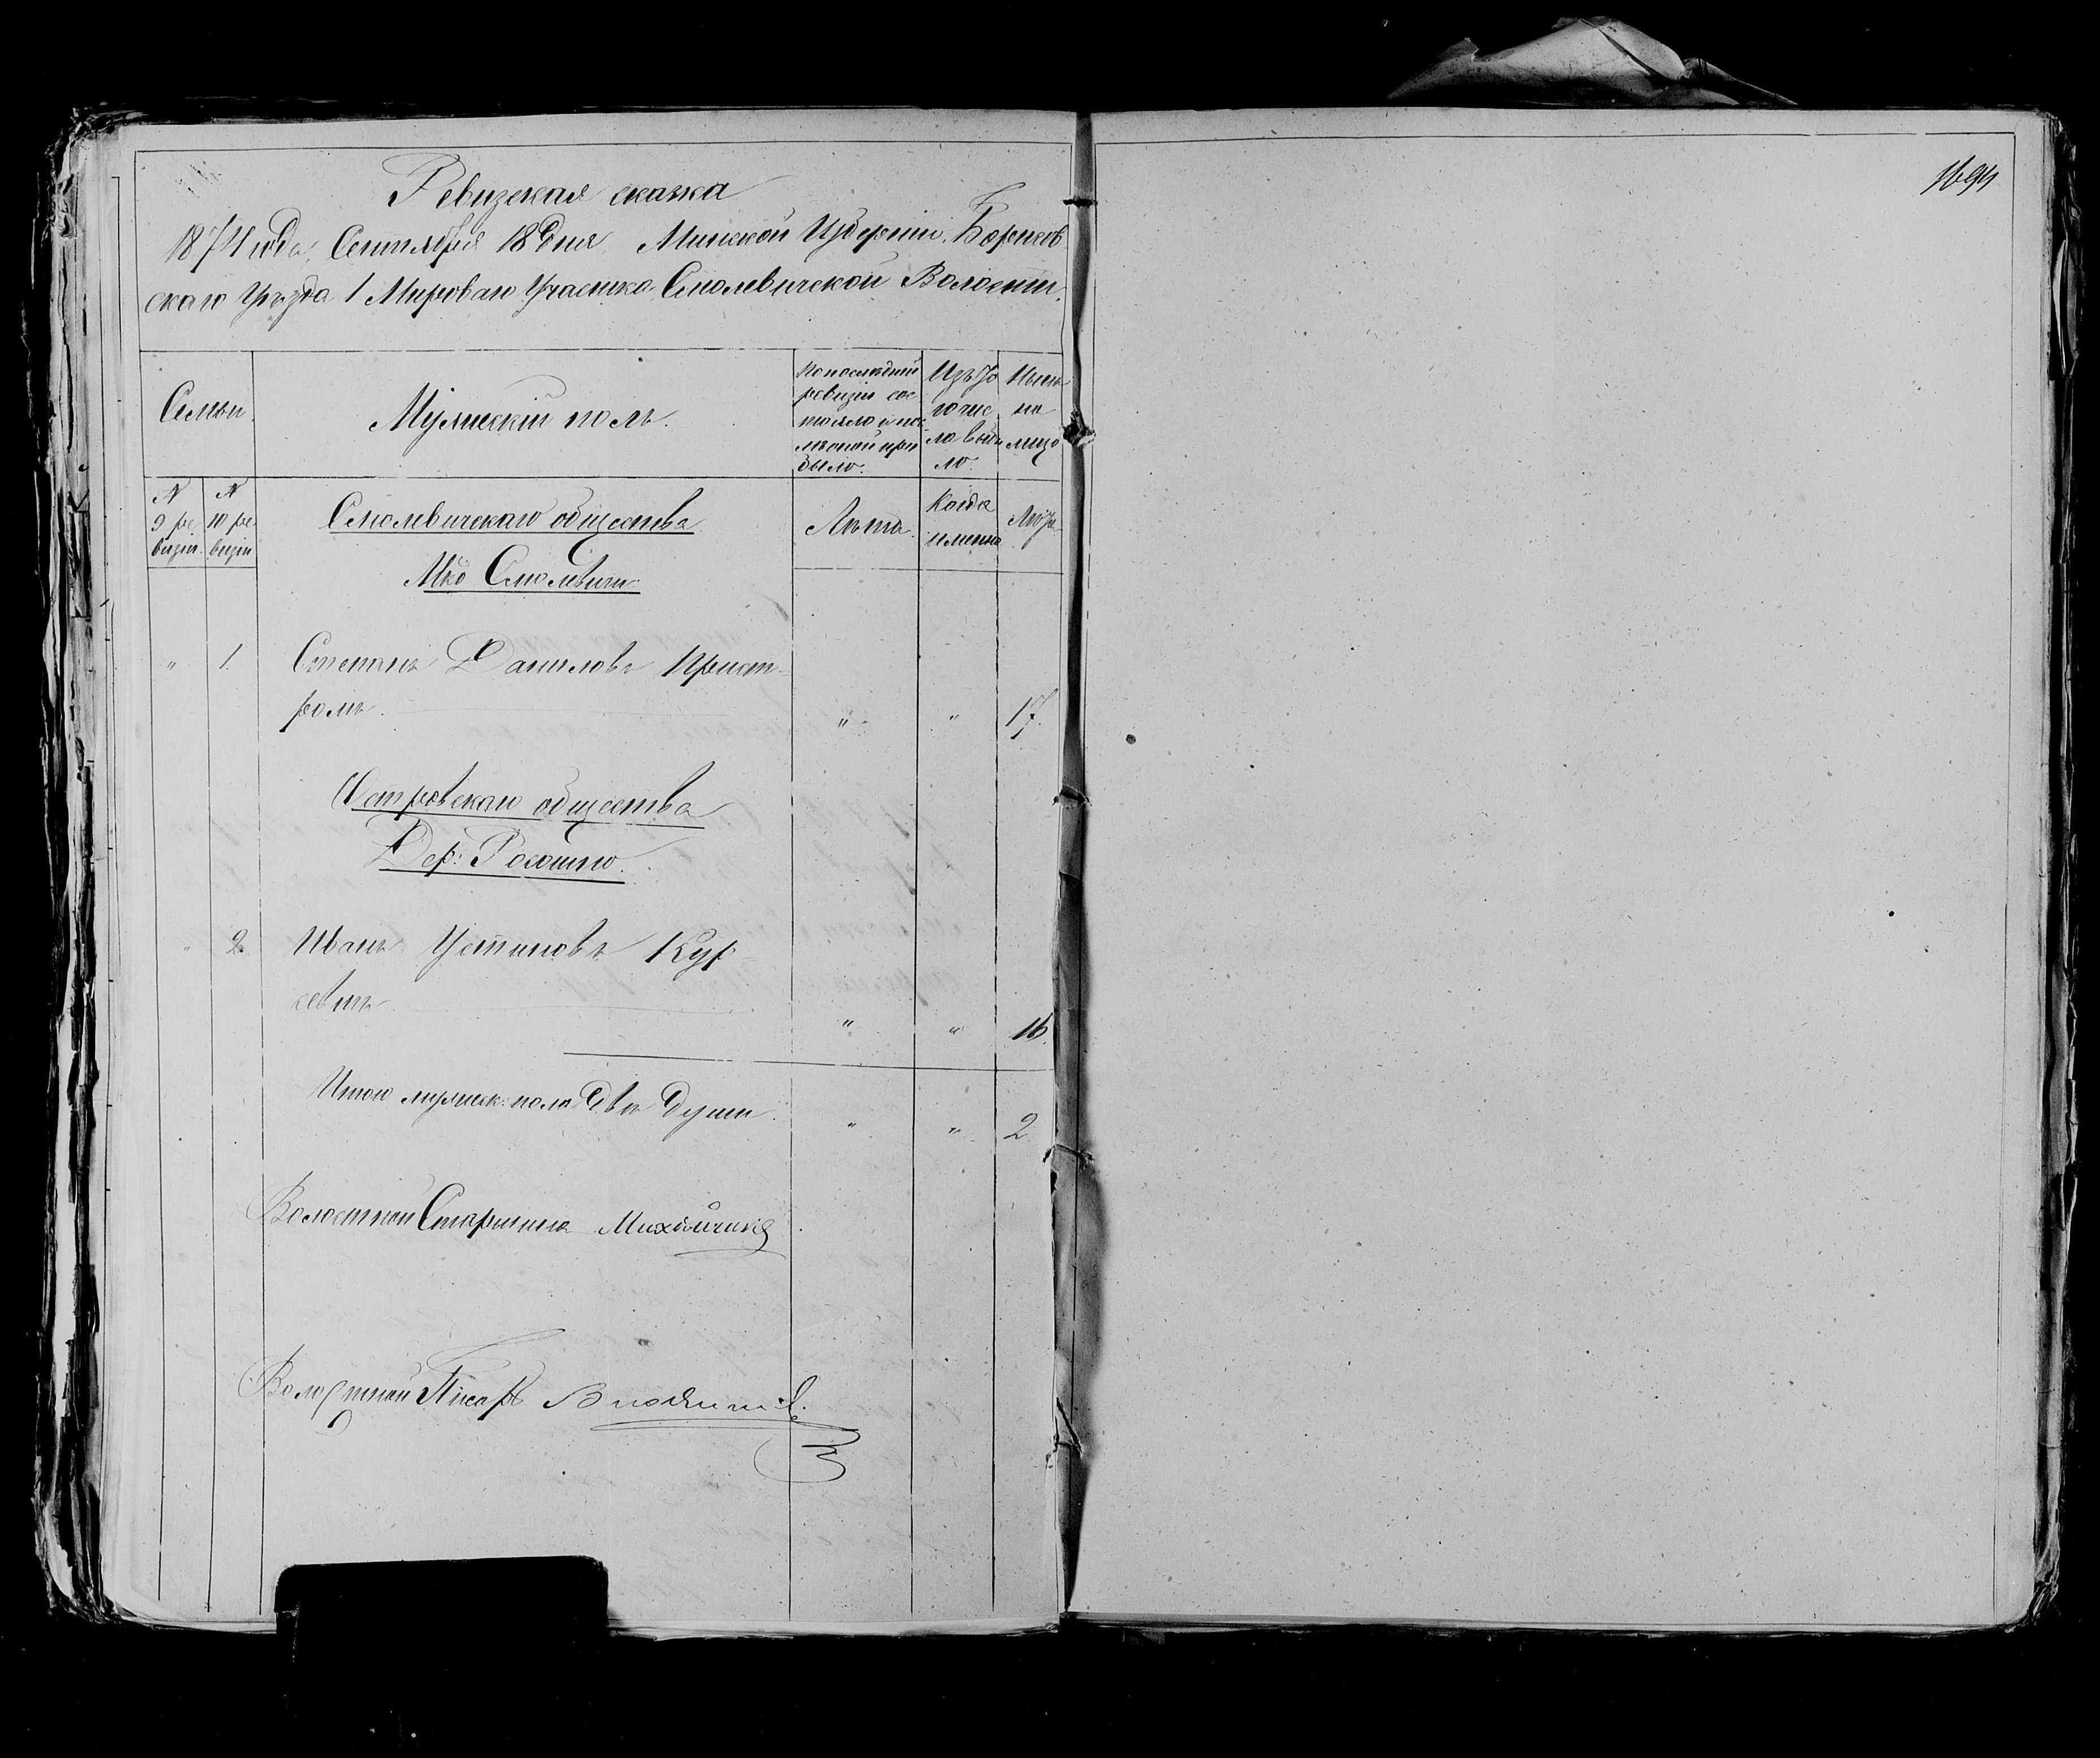 Ревизская сказка
1874 года, Сентября 18 дня Минской Губерніи, Борисов
скаго Уѣзда 1 Мироваго Участка Смолевичской Волости.
Семьи.
Мужескій полъ.
По последней
ревизіи сос
тояло и пос
лѣ оной при
было.
Изъ то
го чис
ла выбы
ло.
Нынѣ
на
лицо
№
9 ре
визіи.
№
10 ре
визіи
Смолевичскаго общества
Мко Смолевичи
Лѣта.
Когда
именно
Лѣта
" 1. Степанъ Даниловъ Прист-
ромъ. " " 17.
Островскаго общества
Дер:
" 2. Иванъ Устиновъ Кур
севичъ. " " 16.
Итого мужеск: пола двѣ души. " " 2.
Волостной Старшина
Волостной Писарь